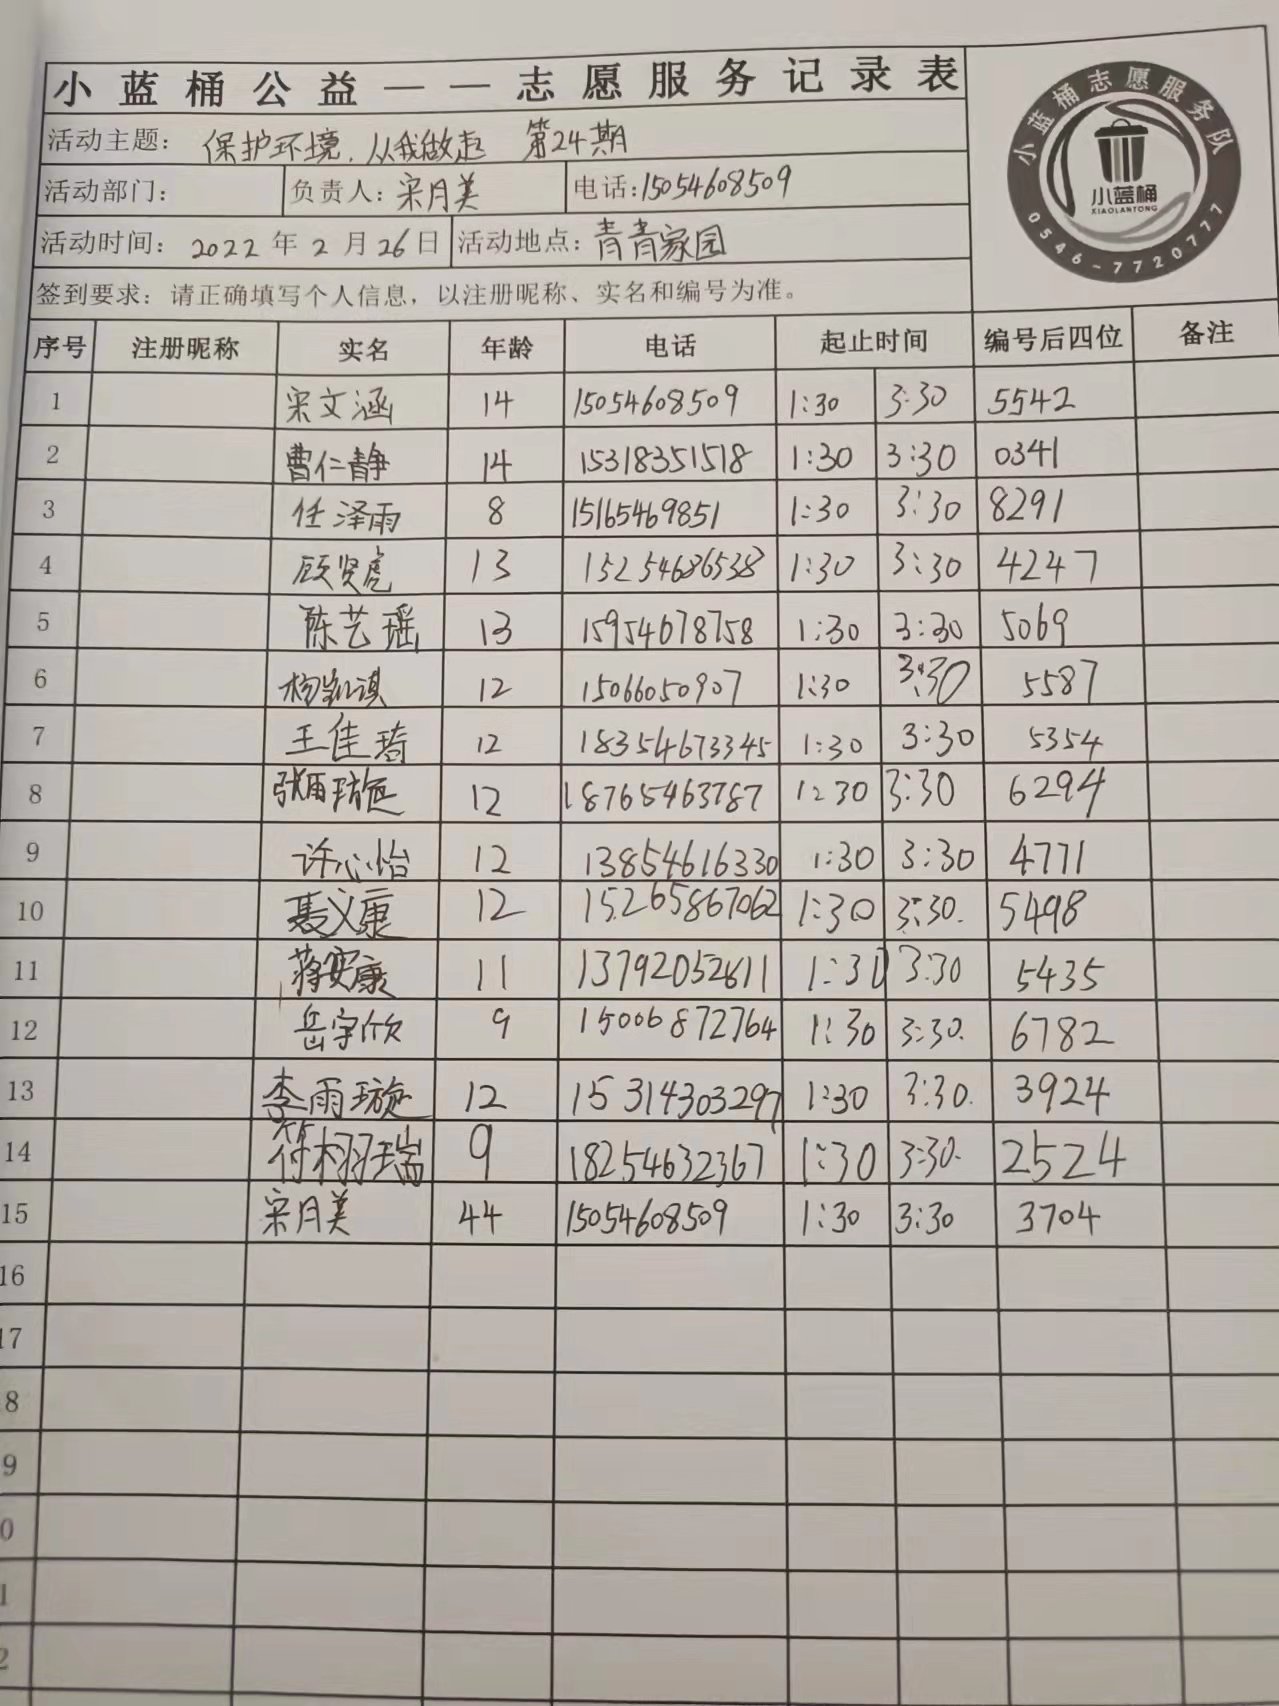 小蓝桶公益——志愿服务记录表
小蓝桶志愿服务队
小蓝桶
XIAOLANTONG
0546-7720777
活动主题： 保护环境,从我做起 第24期
活动部门： 负责人：宋月美 电话:15054608509
活动时间： 2022年2月26日 活动地点：青青家园
签到要求：请正确填写个人信息，以注册昵称、实名和编号为准。
序号 注册昵称 实名 年龄 电话 起止时间 编号后四位 备注
1 宋文涵 14 15054608509 1:30 3:30 5542
2 曹仁静 14 15318351518 1:30 3:30 0341
3 任泽雨 8 15165469851 1:30 3:30 8291
4 顾贤虎 13 15254686538 1:30 3:30 4247
5 陈艺瑶 13 15954678758 1:30 3:30 5069
6 杨凯淇 12 15066050907 1:30 3:30 5587
7 王佳琦 12 18354673345 1:30 3:30 5354
8 12 18765463787 1:30 3:30 6294
9 许心怡 12 13854616330 1:30 3:30 4771
10 聂义康 12 15265867062 1:30 3:30. 5498
11 蒋安康 11 13792052611 1:30 3:30 5435
12 岳宇欣 9 15006872764 1:30 3:30. 6782
13 李雨璇 12 15314303297 1:30 3:30. 3924
14 符栩瑞 9 18254632367 1:30 3:30. 2524
15 宋月美 44 15054608509 1:30 3:30 3704
16
17
8
9
0
1
2